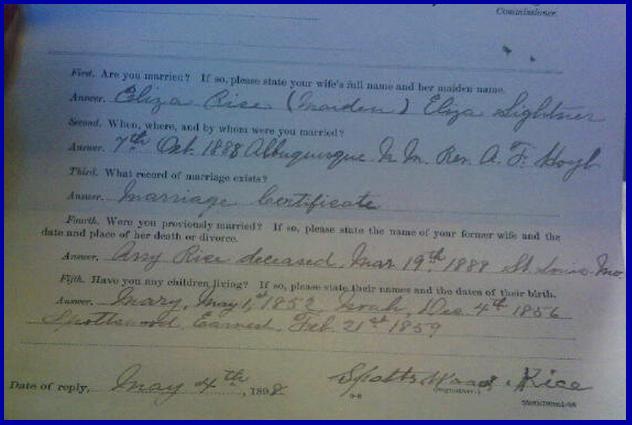 Commissioner.
First. Are you married? If so, please state your wife's full name and her maiden name.
Answer. Eliza Rice (Maiden) Eliza Lightner
Second. When, where, and by whom were you married?
Answer. 7th Oct. 1888 Albuquerque N. M. Rev. A. F. Hoyt
Third. What record of marriage exists?
Answer. Marriage Certificate
Fourth. Were you previously married? If so, please state the name of your former wife and the
date and place of her death or divorce.
Answer. Arry Rice deceased, Mar 19th 1888 St. Louis Mo.
Fifth. Have you any children living? If so, please state their names and the dates of their birth.
Answer. Mary, May 1st 1852 Noah, Dec 4th 1856
Spottswood Earnest Feb. 21st 1859
Date of reply, May 4th, 1898 Spotts Wood Rice
(Signature.)